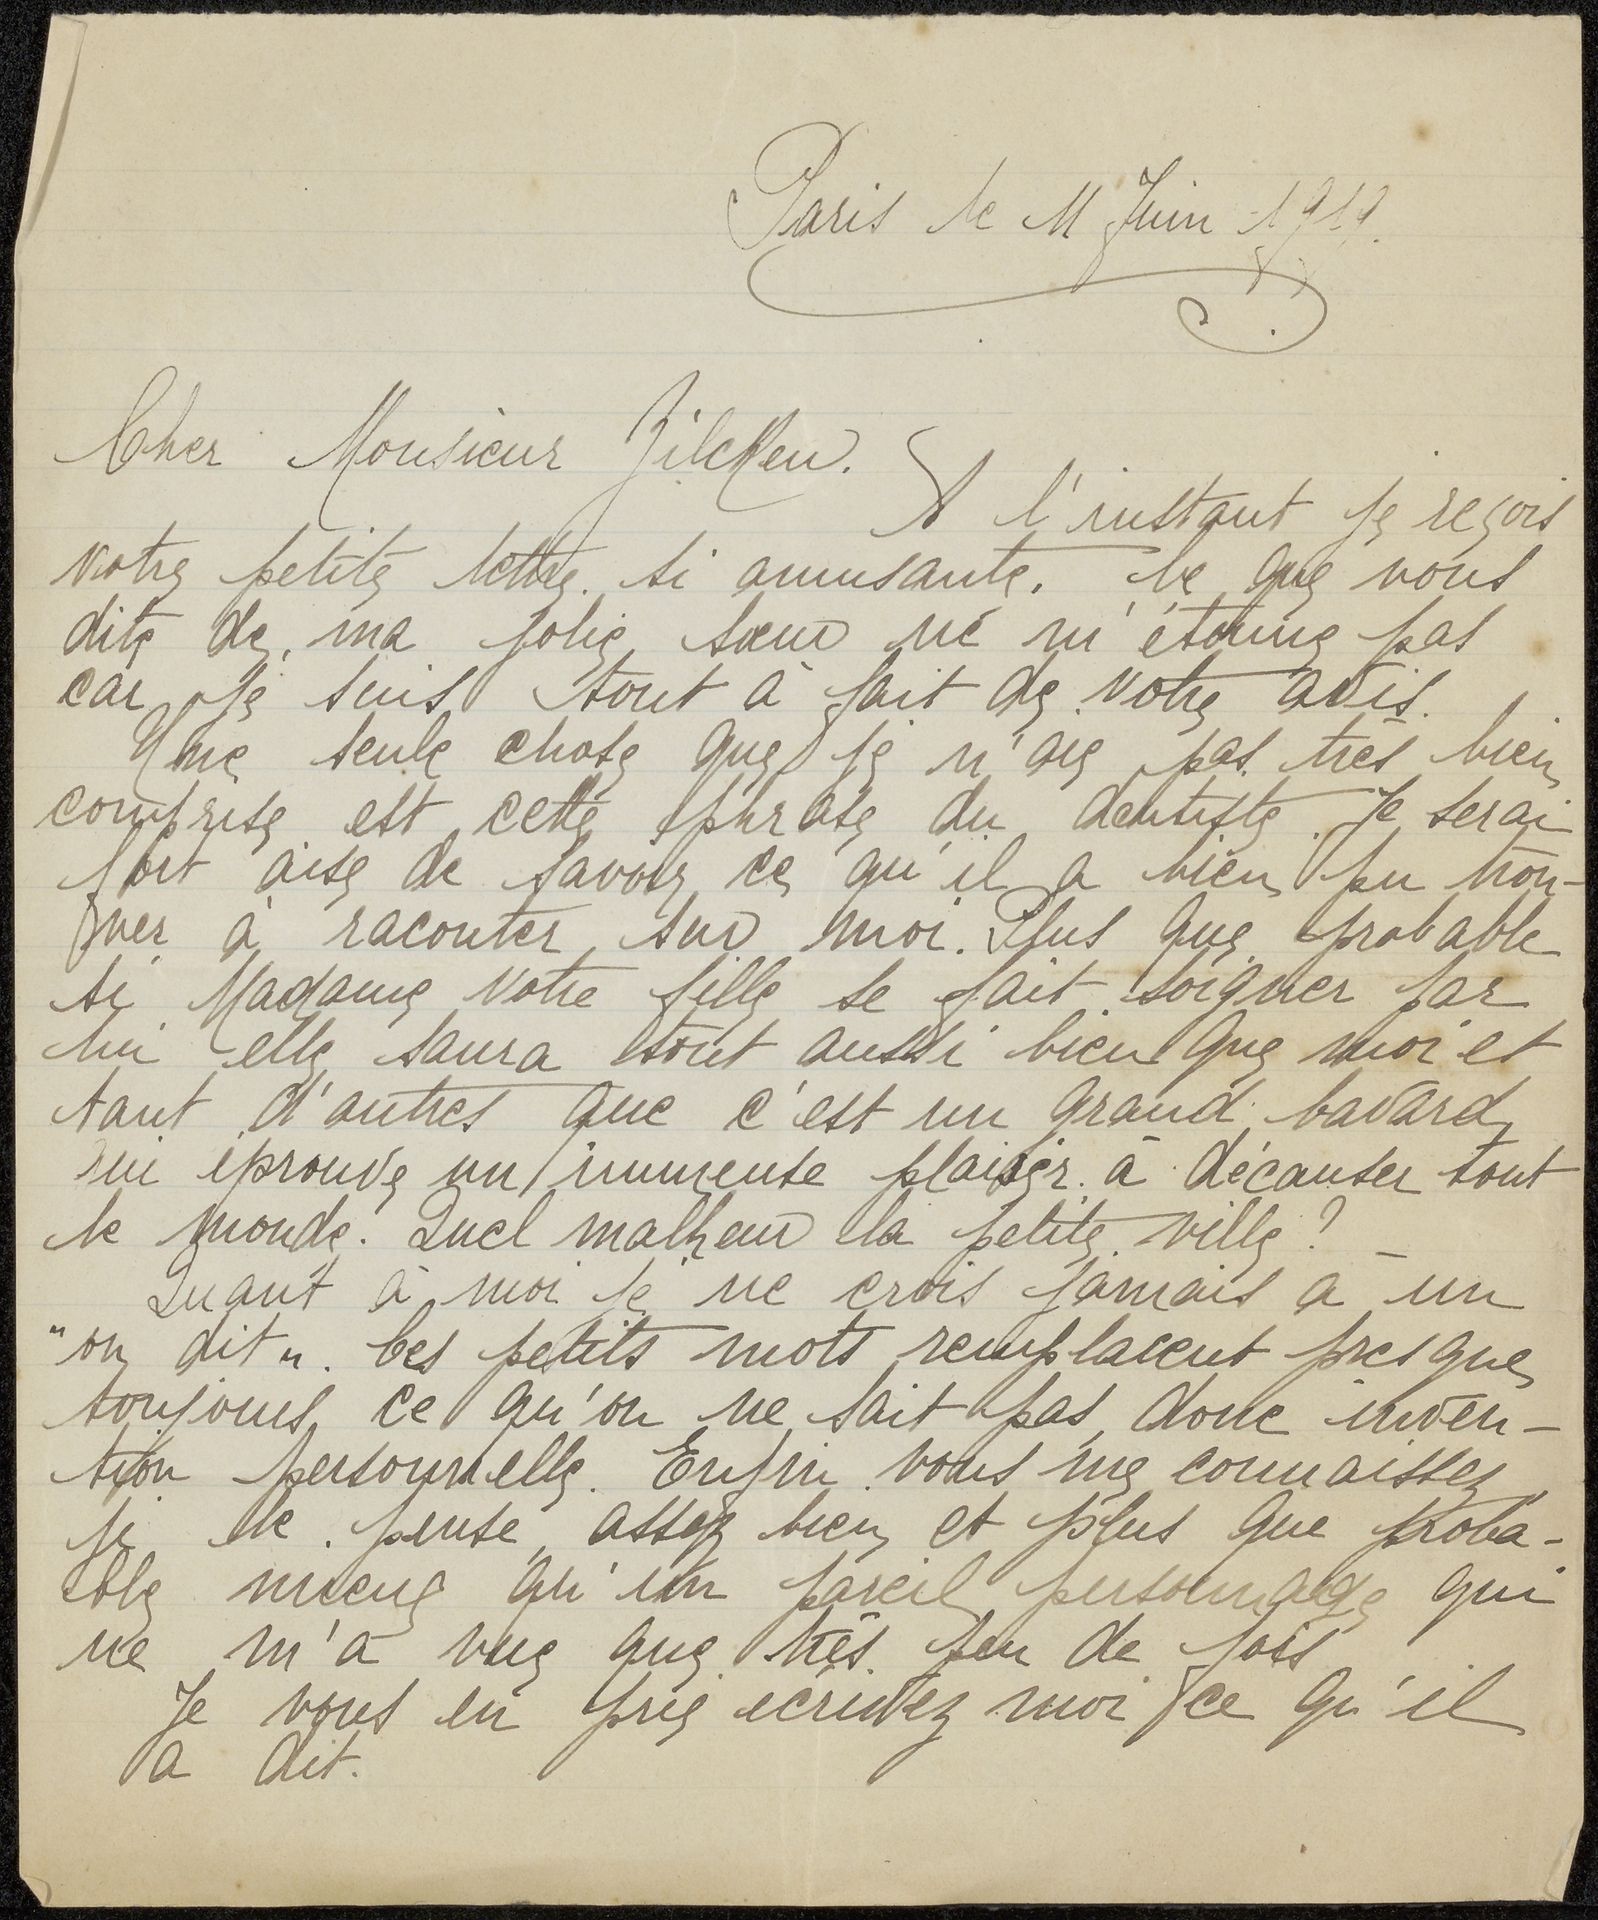 Paris le 11 Juin 1919.
Cher Monsieur Zilcken.
A l'instant je reçois
votre petite lettre si amusante. Ce que vous
dite de ma jolie sœur ne m'étonne pas
car je suis tout à fait de votre avis.
Une seule chose que je n'aie pas très bien
comprise est cette phrase du dentiste. Je serai
fort aise de savoir ce qu'il a bien pu trou-
ver à raconter sur moi. Plus que probable
si Madame votre fille se fait soigner par
lui elle saura tout aussi bien que moi et
tant d'autres que c'est un grand bavard
qui éprouve un immense plaisir à décauser tout
le monde. Quel malheur la petite ville! _
Quant à moi je ne crois jamais a un
"on dit". Ces petits mots remplacent presque
toujours ce qu'on ne sait pas, donc inven-
tion personnelle. Enfin vous me connaissez,
je le pense, assez bien et plus que proba-
ble mieux qu'un pareil personnage qui
ne m'a vue que très peu de fois
Je vous en prie ecrivez moi ce qu'il
a dit.